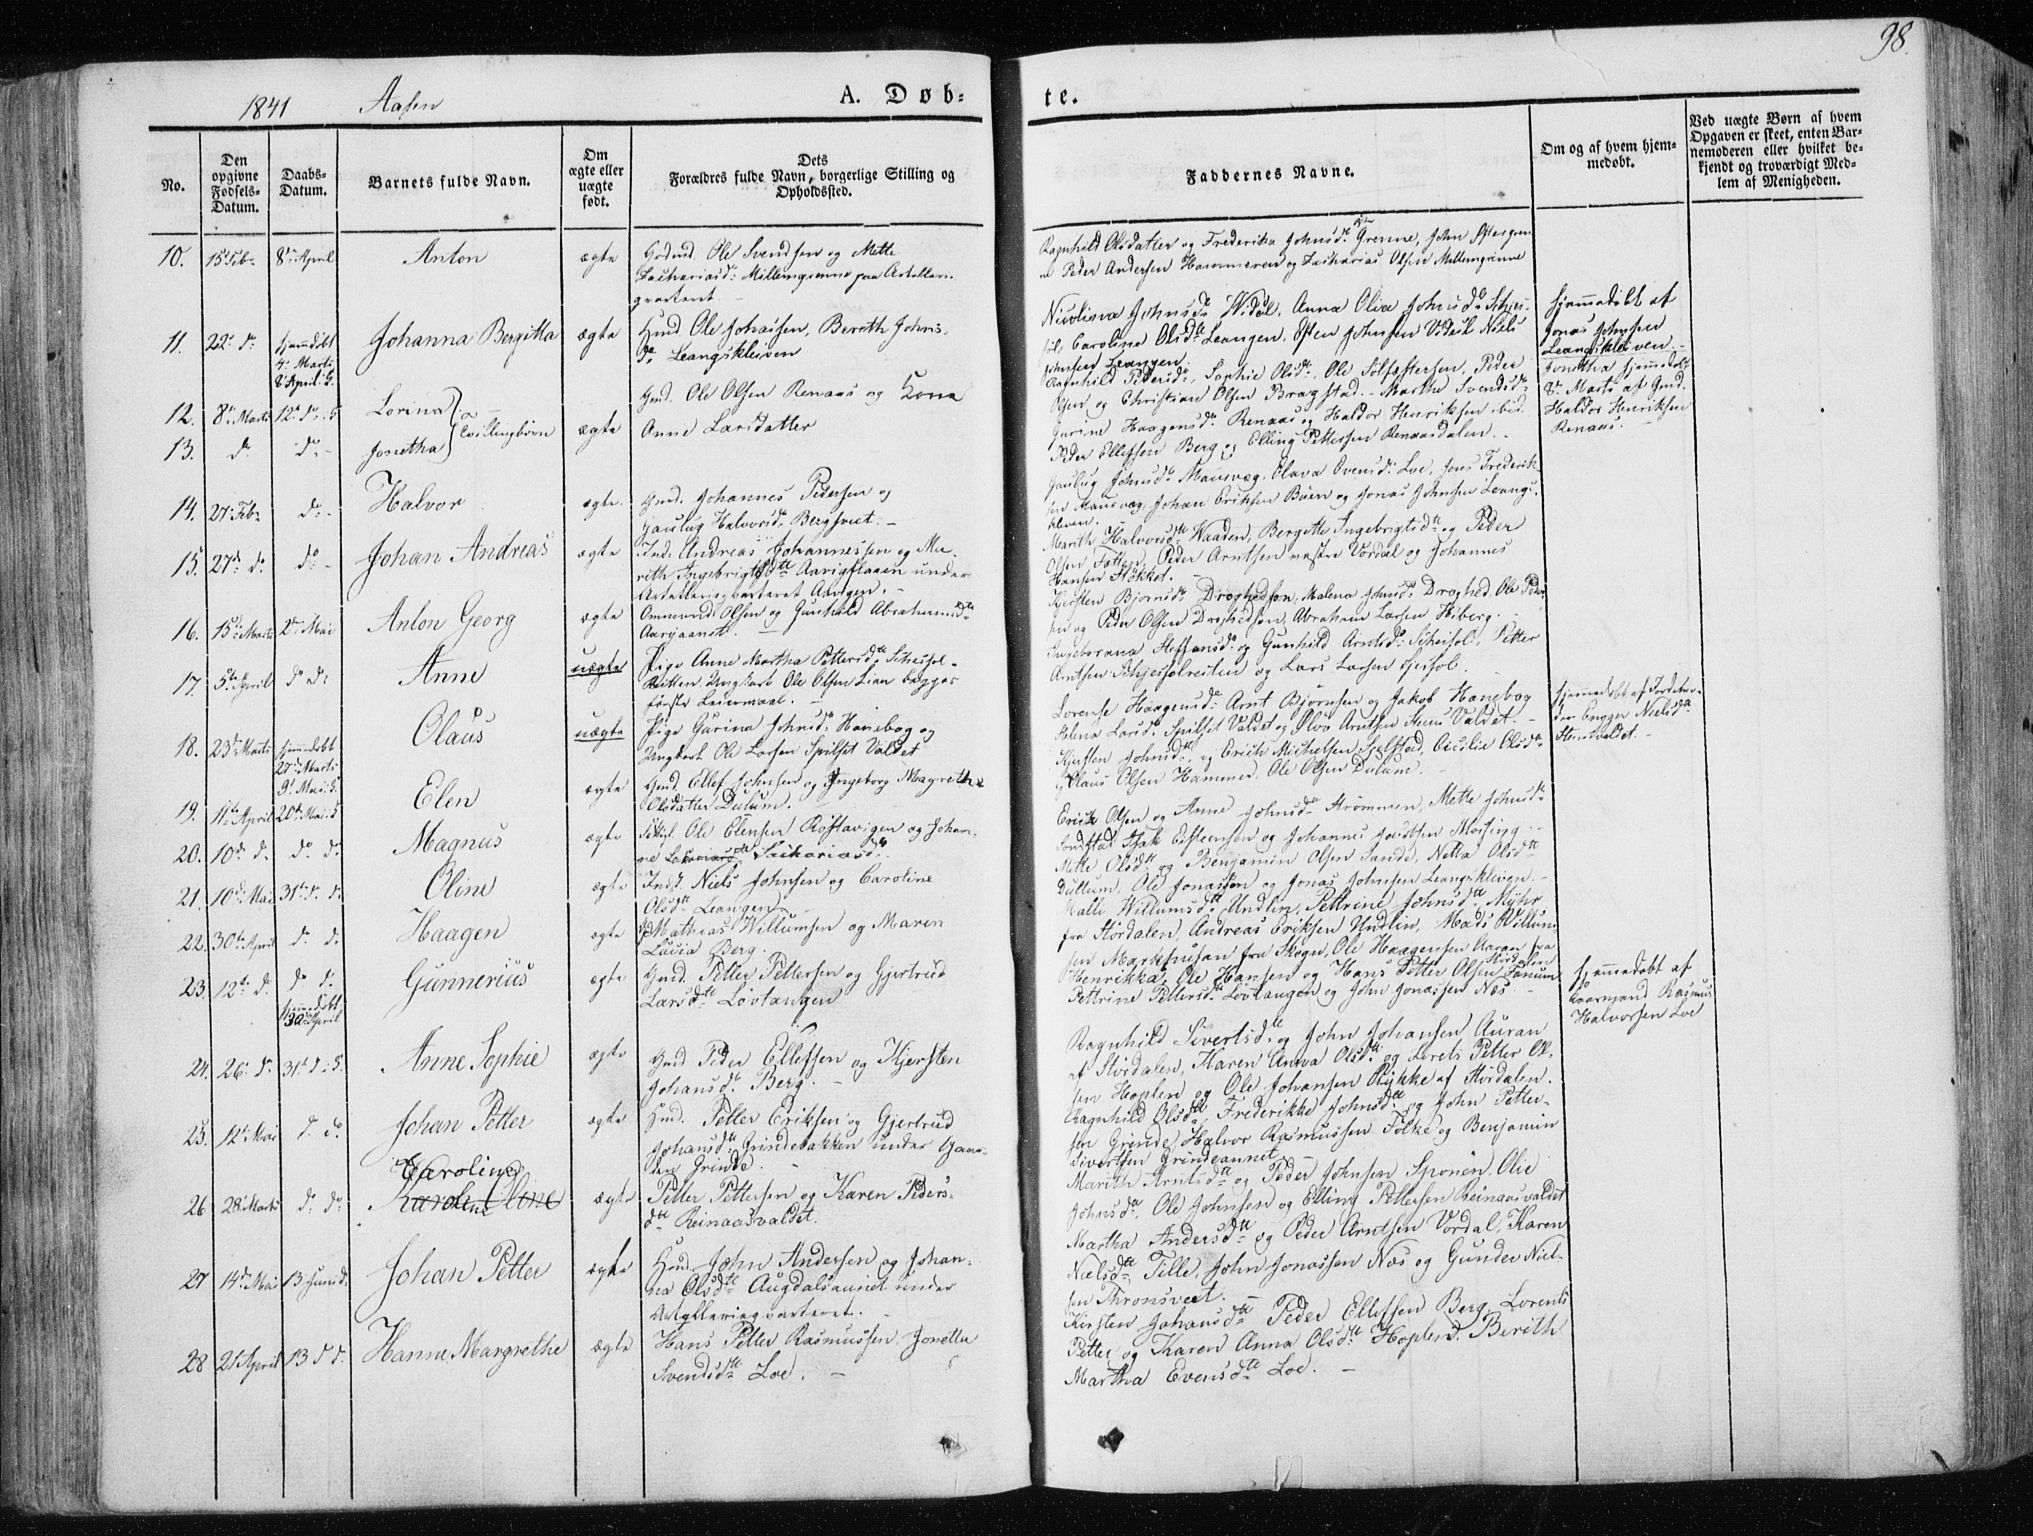 98.
1841 Aasen A. Døb-
te.
No.
Den opgivne Fødsels-Datum.
Daabs-Datum.
Barnets fulde Navn.
Om ægte eller uægte født.
Dets Forældres fulde Navn, borgerlige Stilling og Opholdssted.
Faddernes Navne.
Om og af hvem hjem-medøbt.
Ved uægte Børn af hvem Opgaven er skeet, enten Bar-nemoderen eller hvilket be-kjendt og troværdigt Med-lem af Menigheden.
10. 15 Feb. 8de April Anton ægte Ole Svendsen og Mette
Zachariasd. Mellemgrenne paa Artilleri-
qvarteret
Ragnhild Olsdatter og Frederikka Johnsd. Grenne, John
Peder Andersen Hammeren og Zacharias Olsen Mellemgrenne
11. 22. d. hjemmedøbt 4. Marts 8 April Johanna Bergitta ægte Hmd Ole Johnssen, Berith Johns-
d. Leangskleiven
Nicolina Johnsd. Widal, Anna Oliva Johnsd.
Caroline Olsd. Leangen, Esten Johnsen Vedul Niels
Johnsen Leangen.
Hjemmedøbt af
Jonas Johnsen
Leangskleiven.
12. 8de Marts 12. d. Lorina Gmd. Ole Olsen Renaas og Kona
13. d. d. Jonetha Tvillingbørn ægte Anne Larsdatter
Ragnhild Pedersd., Sophie Olsd., Ole Peder
Olsen og Christian Olsen Bragstad. Martha Svendsd.
Gurine Haagensd. Renaas og Haldor Henriksen ibid.
Peder Ellefsen Berg og Elling Pettersen Renaasdalen.
Jonetha hjemmedøbt
8de Marts af Gmd.
Haldor Henriksen
Renaas.
14. 27. Feb. d. Halvor ægte Gmd. Johannes Pedersen og
Halvorsd. Bergsveet.
Johnsd. Mansvæg, Olava Evensd. Loe, Jens Frederik-
sen Mansvæg, Johan Eriksen Buen og Jonas Johnsen Leangs-
kleven.
15. 27. d. d. Johan Andreas ægte Ind. Andreas Johannessen og Ma-
rith Ingebrigtsd. under
Artilleriqvarteret
Marith Halvorsd. Waaden, Bergitte Ingebrigtsd. og Peder
Olsen, Peder Arntsen vestre Vordal og Johannes
Hansen Stokket.
16. 15. Marts 2den Mai Anton Georg ægte Ommund Olsen og Gunhild Abrahamsd.
Kjersten Bjornsd. Malena Johnsd. Droghed, Ole Peder-
sen og Peder Olsen Abraham Larsen Hiberg.
17. 5te April d. d. Anne uægte Pige Anne Martha Pettersd.
Ungkarl Ole Olsen Lian begges
første Leiermaal.
Steffensd. og Gunhild Arntsd. Petter
Arntsen og Lars Larsen
18. 23de Marts hjemmedøbt 27. Marts 9. Mai Olaus uægte Pige Gurina Johnsd. Hanebog og
Ungkarl Ole Larsen Spilset Valdet
Lorense Haagensd. Arnt Bjørnsen og Jakob Hanebog
Helena Larsd. Spilset Valdet og Arntsen Valdet.
hjemmedøbt af
Nielsd.
19. 11te April 20de Mai Elen ægte Gmd. Ellef Johnsen og Ingeborg Magrethe
Olsdatter Dulum.
Kjersten Johnsd. og Erich Michelsen Cicilie Olsd.
Claus Olsen Hammer. Ole Olsen Dulum.
20. 10de d. d. d. Magnus ægte Ole Elensen Røstavigen og Johan-
ne Zachariasd.
Erich Olsen og Anne Johnsd. Strømmen, Mette Johnsd.
Isak Estensen og Johannes Mossing
21. 10de Mai 31te d. d. Oline ægte Indst. Niels Johnsen og Caroline
Olsd. Leangen
Mette Olsd. og Benjamin Olsen Sande, Netta Olsd.
Dullum, Ole Jonassen og Jonas Johnsen Leangskleven.
22. 30te April d. d. Haagen ægte Mathias Willumsen og Maren
Berg.
Malli Willumsd. Undlin, Pettrine Johnsd. Myhr
fra Stordalen, Andreas Eriksen Undlin, Mads Willum-
sen Markhusan fra Skogn, Ole Haagensen Auran fra
Stordalen
23. 12te d. d. d. hjemmedøbt 30 April Gunnerius ægte Gmd. Petter Pettersen og Gjertrud
Larsd. Løvtangen
Henrikka, Ole Hansen og Hans Petter Olsen Fanum
Pettrine Pettersd. Løvtangen og John Jonassen Næs
hjemmedøbt af
Rasmus
Halvorsen Loe
24. 26. d. 31te d. Anne Sophie ægte Gmd Peder Ellefsen og Kjersten
Johansd. Berg.
Ragnhild Sivertsd. og John Johansen Auran
af Stordalen, Karen Anna Olsd. og Lorets Petter Ol-
sen Hoplen og Ole Johansen Rykke af Stordalen.
25. 12te Mai d. d. Johan Petter ægte Hmd. Petter Eriksen og Gjertrud
Johansd. Grindebakken under Gaar-
den Grinde.
Ragnhild Olsd. Frederikke Johnsd. og John Petter-
sen Grinde, Halvor Rasmussen Folke og Benjamin
Sivertsen Grindeaunet
26 28. Marts d. d. Caroline Karolene Oline ægte Petter Pettersen og Karen Peders-
d. Reinaasvaldet.
Marith Arntsd. og Peder Johnsen Sponen, Olie
Johnsd., Ole Johnsen og Elling Pettersen Reinaasvaldet
27 14de Mai 13 Juni Johan Petter ægte Hmd. John Andersen og Johan-
na Olsd. Augdalsaunet under
Artilleriqvarteret.
Martha Andersd. og Peder Arntsen Vordal, Karen
Nielsd. Tille, John Jonassen Næs og Gunder Niel-
sen Thronsveet.
28 21 April 13 d. d. Hanne Margrethe ægte Hans Petter Rasmussen Jonetta
Svendsd. Loe.
Kirsten Johansd. Peder Ellefsen Berg, Lorents
Petter og Karen Anna Olsd. Hoplen. Berith
Martha Evensd. Loe.